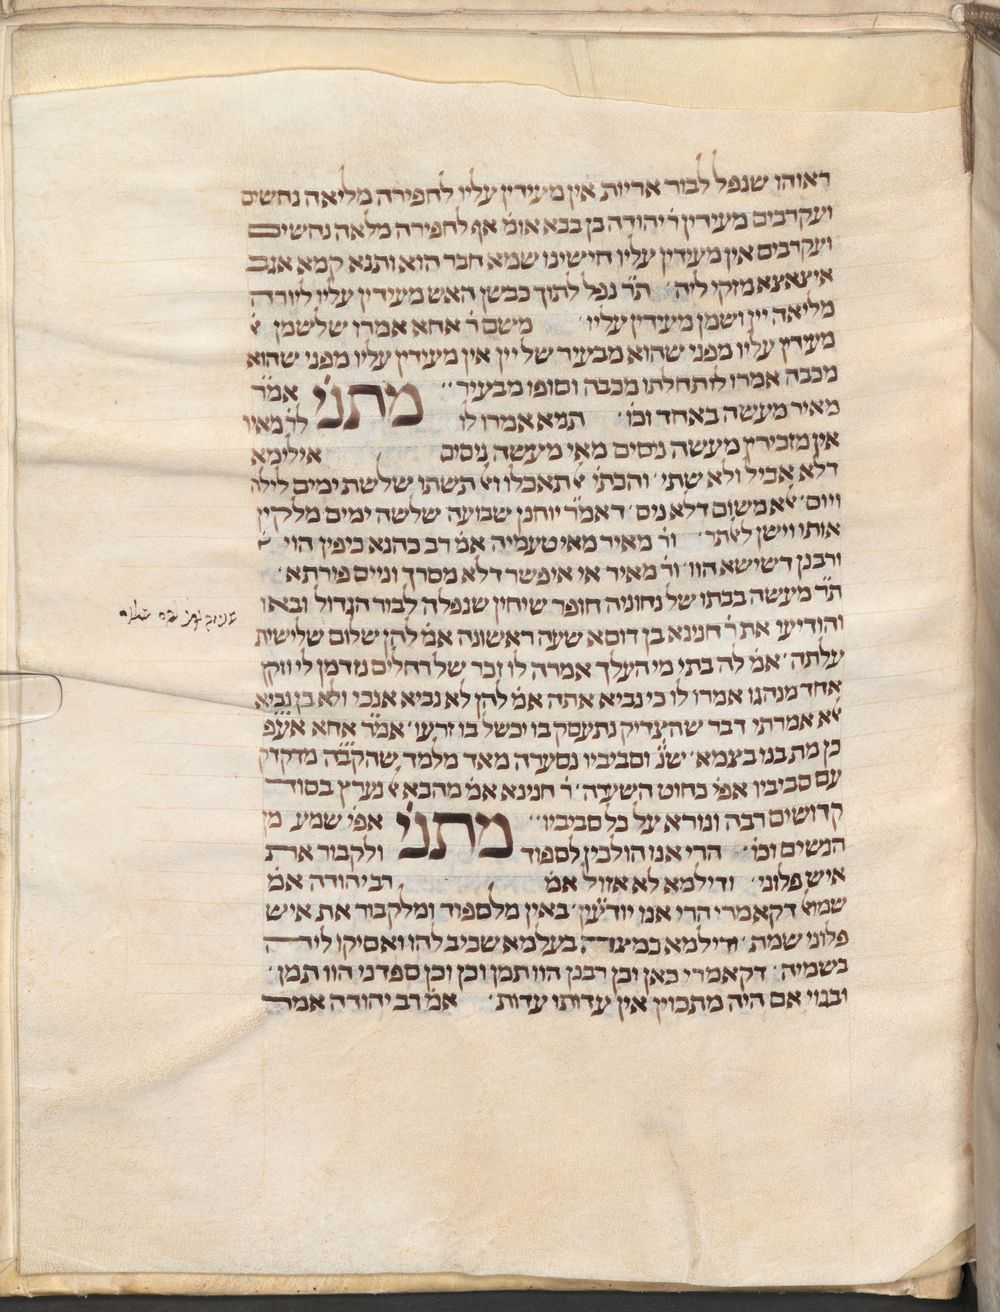 ראוהו שנפל לבור אריות אין מעידין עליו לחפירה מליאה נחשים
ועקרבים מעידין ר' יהודה בן בבא אומ' אף לחפירה מלאה נחשים
ועקרבים אין מעידין עליו חישינו שמא חבר הוא ותנא קמא אגב
איצצא מזקי ליה' ת"ר נפל לתוך כבשן האש מעידין עליו ליורה
מליאה יין ושמן מעידין עליו' משם ר' אחא אמרו של שמן
מעידין עליו מפני שהוא מבעיר של יין אין מעידין עליו מפני שהוא
מכבה אמרו לו תחלתו מכבה וסופו מבעיר'' מתני' אמ"ר
מאיר מעשה באחד וכו' תניא אמרו לו לר' מאיר
אין מזכירין מעשה ניסים מאי מעשה ניסים אילימא
דלא אכיל ולא שתי' והכתי' אל תאכלו ואל תשתו שלשת ימים לילה
ויום' אלא משום דלא ניס' דאמ"ר יוחנן שבועה שלשה ימים מלקין
אותו וישן לאלתר' ור' מאיר מאי טעמיה אמ' רב כהנא כיפין הוי
ורבנן דשישא הוו' ור' מאיר אי איפשר דלא מסרך וניים פירתא'
ת"ר מעשה בבתו של נחוניה חופר שיחין שנפלה לבור הגדול ובאו
והודיעו את ר' חנינא בן דוסא שעה ראשונה אמ' להן שלום שלישית
עלתה' אמ' לה בתי מי העלך אמרה לו זכר של רחלים נזדמן לי וזקן
אחד מנהגו אמרו לו כי נביא אתה אמ' להן לא נביא אנכי ולא בן נביא
אלא אמרתי דבר שהצדיק נתעסק בו יכשל בו זרעו' אמ"ר אחא אע"פ
כן מת בנו בצמא' ישנ' וסביביו נסערה מאד מלמד שהקב"ה מדקדק
עם סביביו אפי' כחוט השערה' ר' חנינא אמ' מהכא אל נערץ בסוד
קדושים רבה ונורא על כל סביביו'' מתני' אפי' שמע מן
הנשים וכו' הרי אנו הולכין לספוד ולקבור את
איש פלוני' ודילמא לא אזול אמ' רב יהודה אמ'
שמואל דקאמרי הרי אנו יודעין' באין מלספוד ומלקבור את איש
פלוני שמת' ודילמא בעלמא שכיב להו ואסיקו ליה
בשמיה' דקאמרי כאן וכן רבנן הוו תמן וכן וכן ספדני הוו תמן'
ובגוי אם היה מתכוין אין עדותו עדות' אמ' רב יהודה אמר